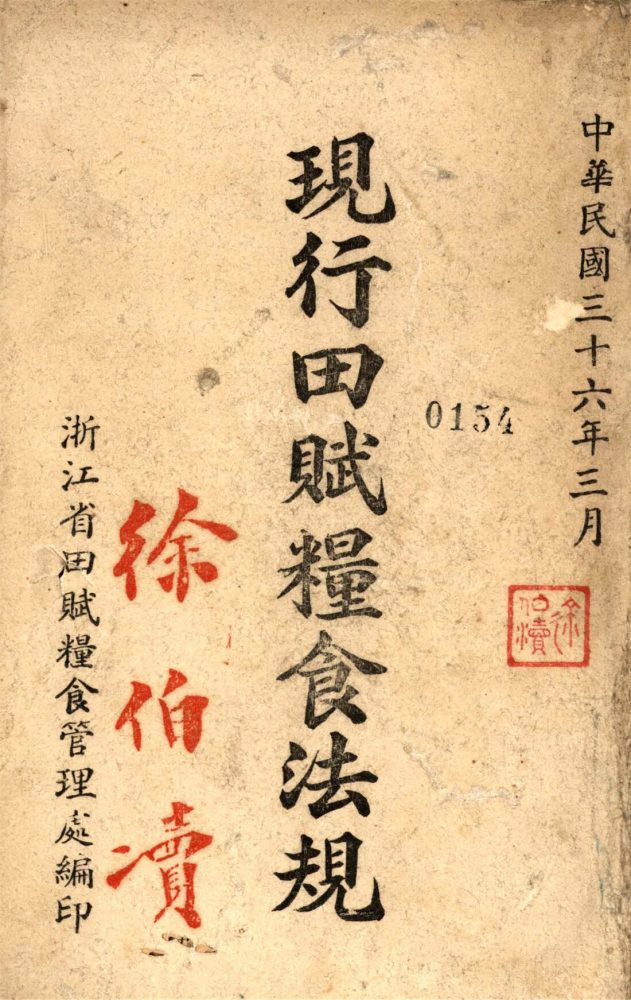 中華民國三十六年三月
0154
現行田賦糧食法規
徐伯瀆
浙江省田賦糧食管理處編印
徐伯瀆